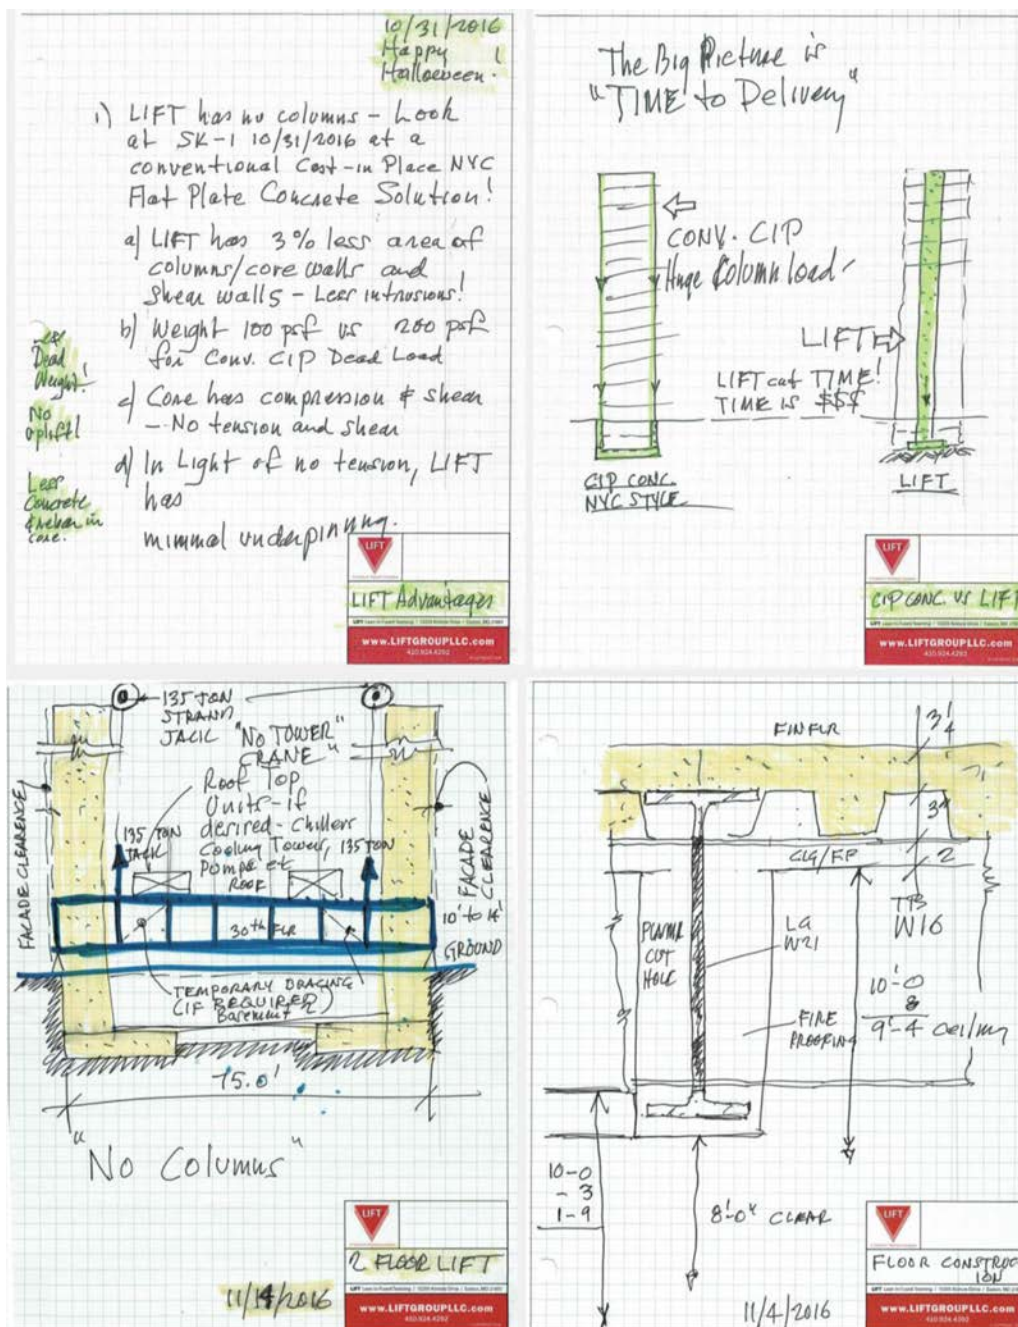 10/31/2016
Happy
Halloween!
1) LIFT has no columns - Look
at SK-1 10/31/2016 at a
conventional Cast-in Place NYC
Flat Plate Concrete Solution!
a) LIFT has 3% less area of
columns/core walls and
shear walls - Less intrusions!
b) Weight 100 psf vs 200 psf
for Conv. CIP Dead Load
c) Core has compression & shear
- No tension and shear
d) In Light of no tension, LIFT
has
minimal underpinning.
Dead
Weight!
No
uplift!
Less
Concrete
& rebar in
core.
LIFT
LIFT Advantages
www.LIFTGROUPLLC.com
The Big Picture is
"TIME to Delivery"
CONV. CIP
Huge Column load
LIFT
LIFT cut TIME!
TIME IS $$$
CIP CONC.
NYC STYLE
LIFT
LIFT
CIP CONC. VS LIFT
www.LIFTGROUPLLC.com
135 TON
STRAND
JACK
"NO TOWER
CRANE"
Roof Top
Units - if
desired - Chillers
Cooling Tower,
Pumps et
ROOF
135 TON
JACK
135 TON
FACADE CLEARENCE
FACADE
CLEARENCE
10' to 14'
30th FLR
GROUND
TEMPORARY BRACING
(IF REQUIRED)
Basement
75.0'
"No Columns"
LIFT
2 FLOOR LIFT
11/14/2016
www.LIFTGROUPLLC.com
FIN FLR
3 1/4
3"
CLG/F.P.
2
W16
PLASMA
CUT
HOLE
W21
FIRE
PROOFING
10'-0
8
9'-4 Ceiling
10-0
- 3
1-9
8'-0" CLEAR
LIFT
FLOOR CONSTRUCT
ION
11/4/2016
www.LIFTGROUPLLC.com